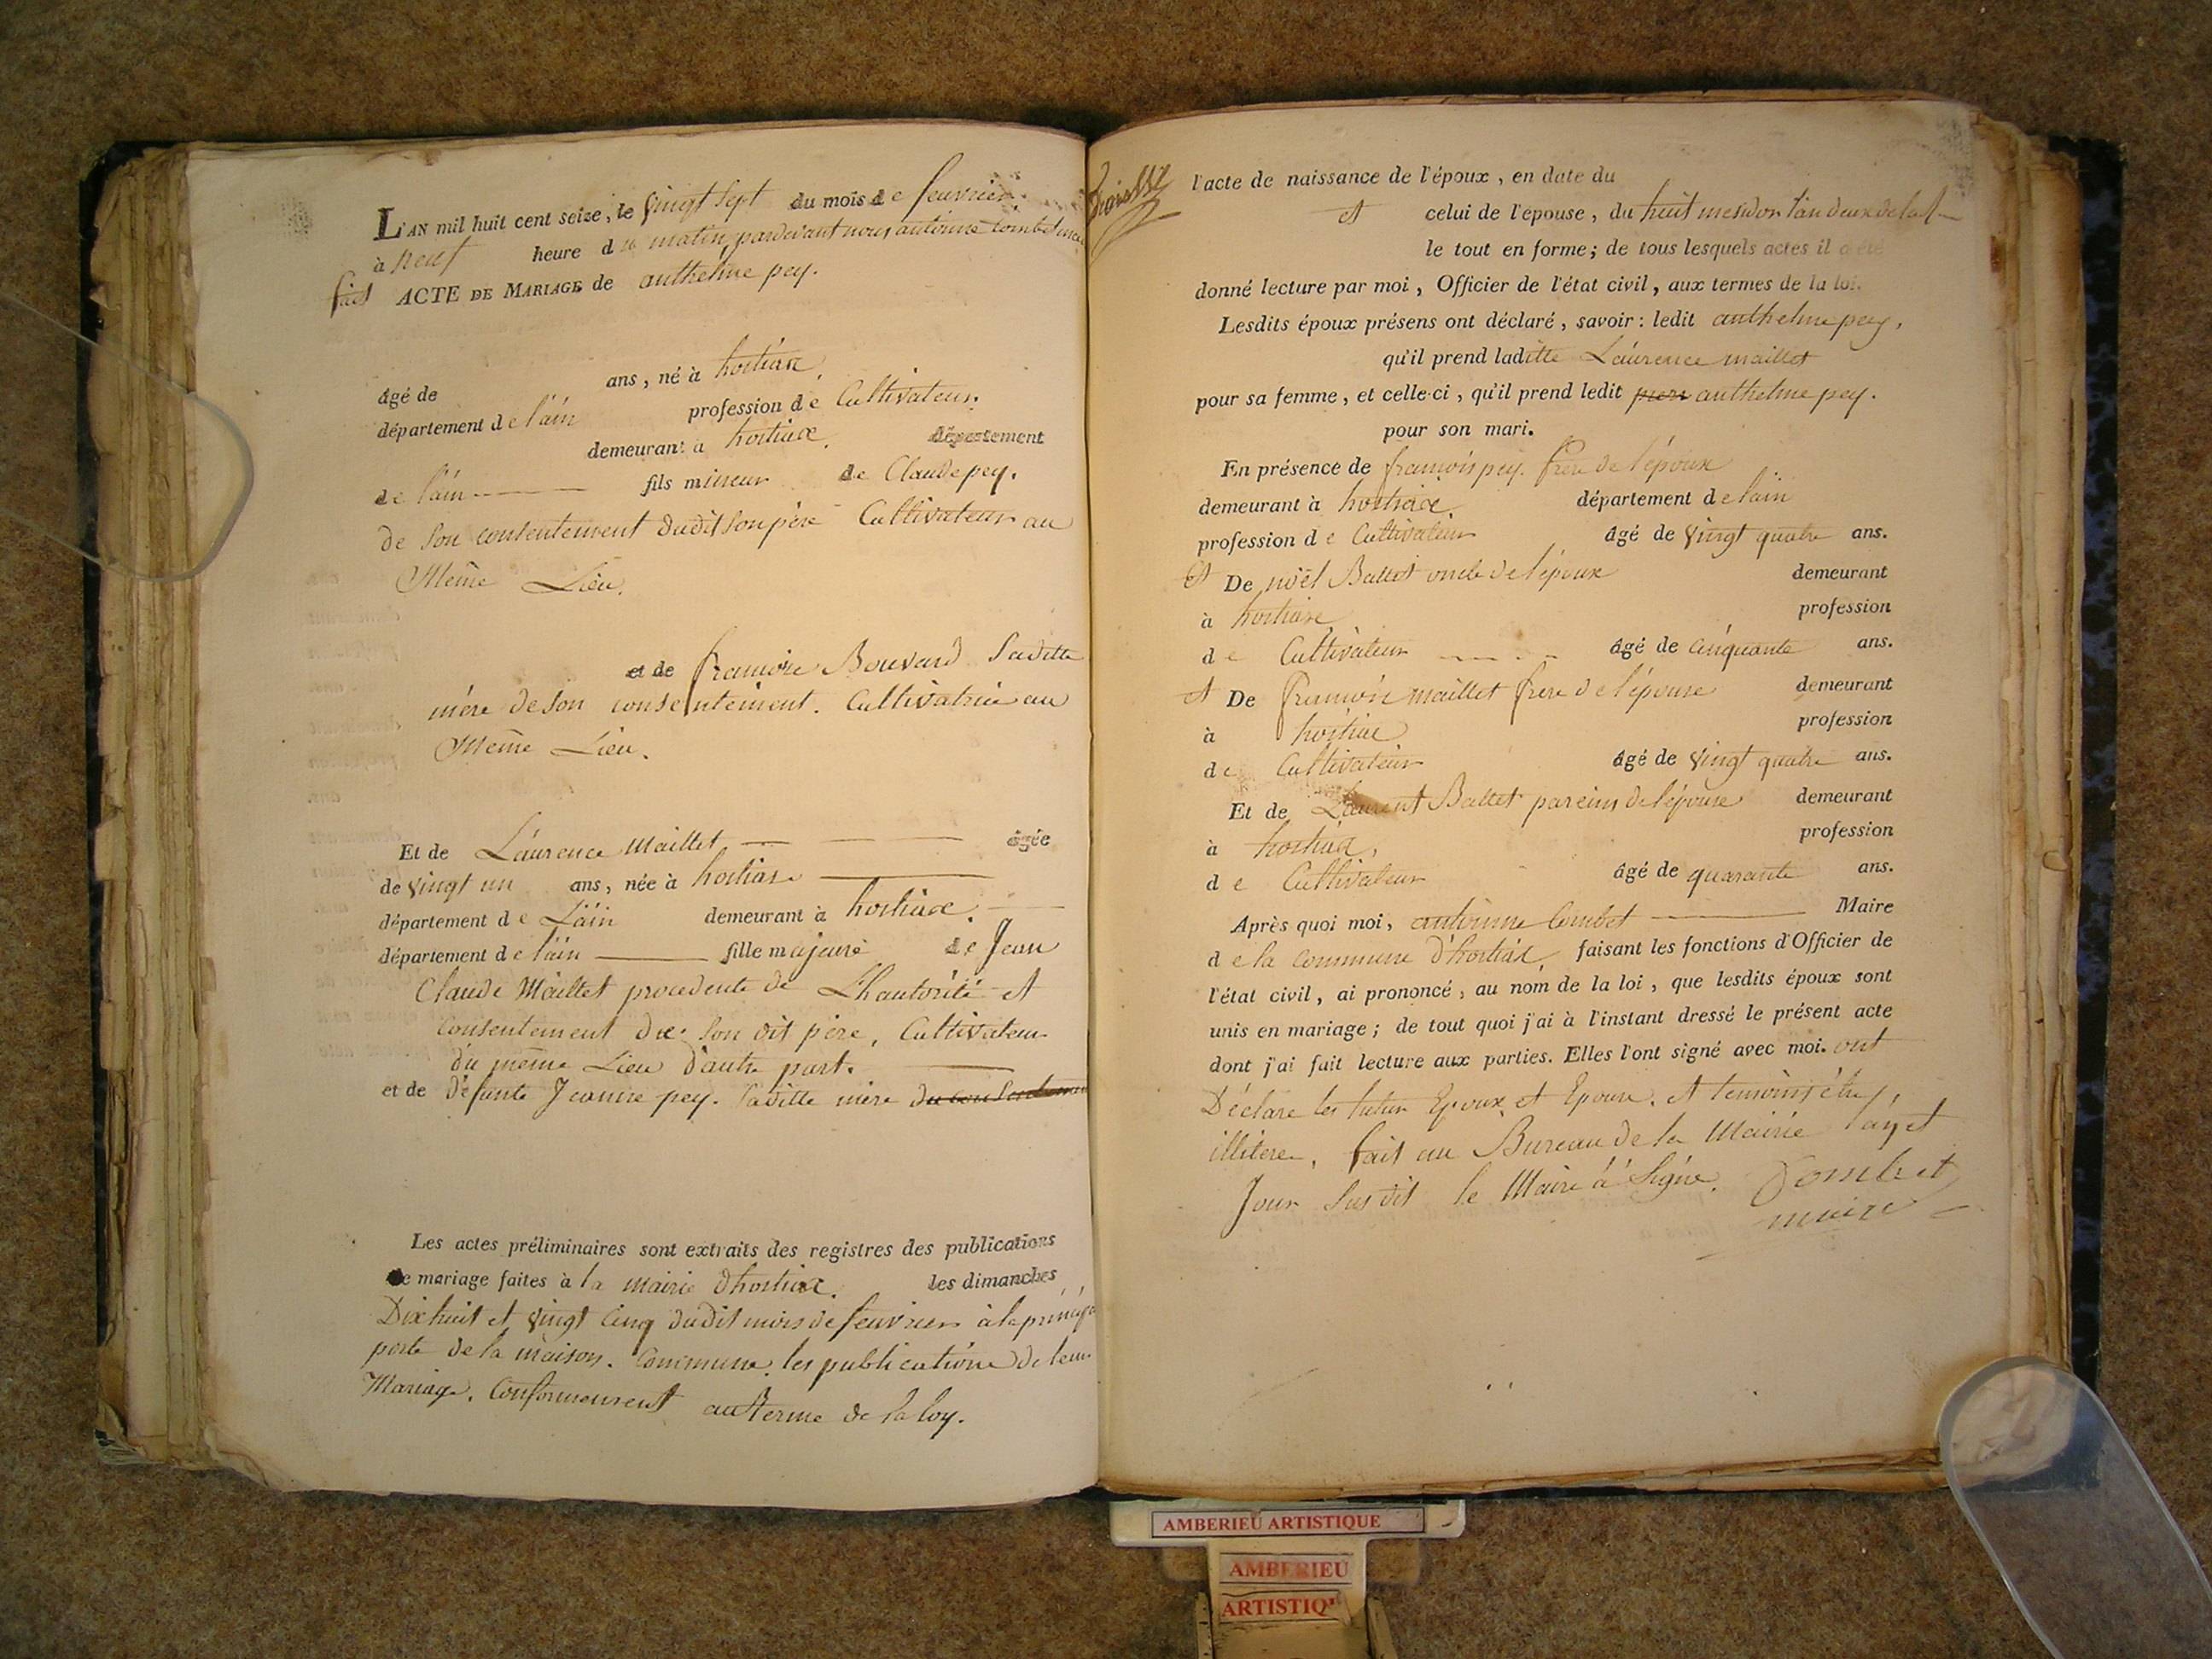 L'AN mil huit cent seize, le vingt sept du mois de feuvrier
à neuf heure du matin, pardevant nous antoinne Combet
fait ACTE DE MARIAGE de anthelme pey.
âgé de ans, né à hostiax
département de l'ain profession de Cultivateur.
demeurant à hostiax. département
de l'ain fils mineur de Claude pey.
de son consentement dudit son père Cultivateur au
Même Lieu.
et de francoise Bouvard Saditte
mère de son consentement. Cultivatrice au
Même Lieu.
Et de Laurence Maillet âgée
de vingt un ans, née à hostiax
département de L'ain demeurant à hostiax.
département de l'ain fille majeure de Jean
Claude Maillet procedente de L'hautorité et
consentement de son dit père, Cultivateur
du même Lieu d'autre part.
et de défunte Jeanne pey. Saditte mère
Les actes préliminaires sont extraits des registres des publications
de mariage faites à la mairie d'hostiax. les dimanches
Dix huit et vingt cinq dudit mois de feuvrier à la
porte de la maison. Commune. les publications de leur
Mariage. Conformement au terme de la loy.
l'acte de naissance de l'époux, en date du
et celui de l'épouse, du huit mesidor l'an deux de la
le tout en forme; de tous lesquels actes il a été
donné lecture par moi, Officier de l'état civil, aux termes de la loi.
Lesdits époux présens ont déclaré, savoir: ledit anthelme pey,
qu'il prend laditte Laurence maillet
pour sa femme, et celle-ci, qu'il prend ledit anthelme pey.
pour son mari.
En présence de francois pey. frere de l'époux
demeurant à hostiax. département de lain
profession de Cultivateur âgé de vingt quatre ans.
et De noël Ballet oncle de l'époux demeurant
à hostiax profession
de Cultivateur âgé de cinquante ans.
et De francois maillet frere de l'épouse demeurant
à hostiax profession
de Cultivateur âgé de vingt quatre ans.
Et de Laurent Ballet parein de l'épouse demeurant
à hostiax, profession
de Cultivateur âgé de quarante ans.
Après quoi moi, antoinne Combet Maire
de la commune d'hostiax, faisant les fonctions d'Officier de
l'état civil, ai prononcé, au nom de la loi, que lesdits époux sont
unis en mariage; de tout quoi j'ai à l'instant dressé le présent acte
dont j'ai fait lecture aux parties. Elles l'ont signé avec moi. ont
Déclare les futur Epoux et Epouse. et temoins être
illitere. fait au Bureau de la Mairie l'an et
Jour Susdit le Maire à Signe. Combet
maire
AMBERIEU ARTISTIQUE
AMBERIEU
ARTISTIQ